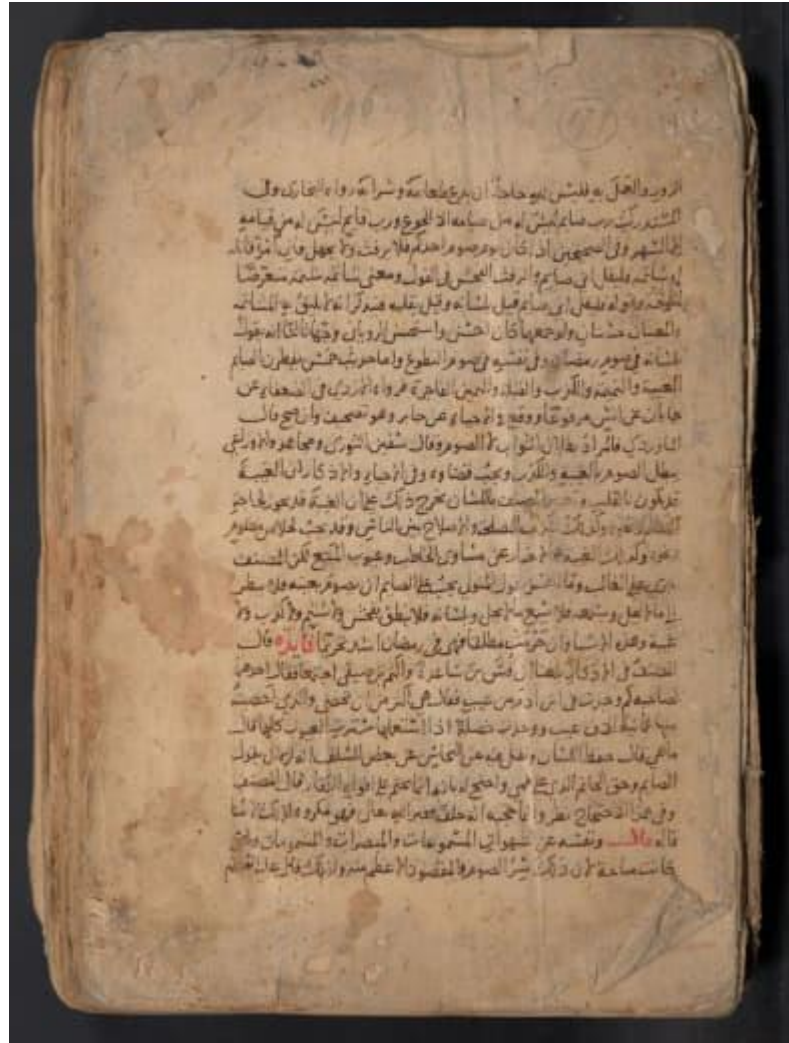 الزور والعمل به فليس لله حاجة ان يدع طعامه وشرابه رواه البخاري وفي
المستدرك رب صايم ليس له من صيامه الا الجوع ورب قايم ليس له من قيامه
الا السهر وفي الصحيحين اذا كان يوم صوم احدكم فلا يرفث ولا يجهل فان امرؤ قاتله
او شاتمه فليقل اني صايم والرفث الفحش في القول ومعنى شاتمه شتمه متعرضا
وقوله فليقل اني صايم قيل بلسانه وقيل بقلبه
والمعنيان حسنان ولو جمعهما كان احسن واستحسن الروياني وجها ثالثا انه يقوله
بلسانه في صوم رمضان وفي نفسه في صوم التطوع واما حديث خمس يفطرن الصايم
الغيبة والنميمة والكذب والقبلة واليمين الفاجرة فرواه الازدي في الضعفاء عن
جابان عن انس مرفوعا ووقع في الاحياء عن جابر وهو تصحيف وان صح قال
الماوردي فالمراد بطلان الثواب لا الصوم وقال سفين الثوري ومجاهد والاوزاعي
يبطل الصوم بالغيبة والكذب ويجب قضاوه وفي الاحياء والاذكار ان الغيبة
تكون بالقلب باللسان يخرج ذلك على ان الغيبة قد تجوز لحاجة
وكذلك الكذب لمصلحة والاصلاح بين الناس وقد يجب لخلاص مظلوم
وكذلك الغيبة عن مساوي الخاطب وعيوب المبيع لكن المصنف
جرى على الغالب يجب على الصايم ان يصوم بعينه فلا ينظر
الى ما لا يحل وبسمعه فلا يسمع ما لا يحل وبلسانه فلا ينطق بفحش ولا شتم ولا كذب ولا
غيبة وهذه الاشيا وان حرمت مطلقا فهي في رمضان اشد تحريما فايدة قال
المصنف في الاذكار بلغنا ان قس بن ساعدة واكثم بن صيفي اجتمعا فقال احدهما
لصاحبه كم وجدت في ابن ادم من عيب فقال هي اكثر من ان تحصى والذي احصيته
ثمانية الاف عيب ووجدت خصلة اذا استعملها سترت العيوب كلها قال
ما هي قال حفظ اللسان عن النحاس عن بعض السلف انه كره ان يقول
الصايم وحق الخاتم الذي على فمي واحتج له بانه انما يختم على افواه الكفار قال المصنف
وفي هذا الاحتجاج نظر وانما حجته انه حلف بغير الله تعالى فهو مكروه
قال ونفسه عن شهواتي المسموعات والمبصرات والمشمومات وان
كانت مباحة لان ذلك سر الصوم والمقصود الاعظم منه